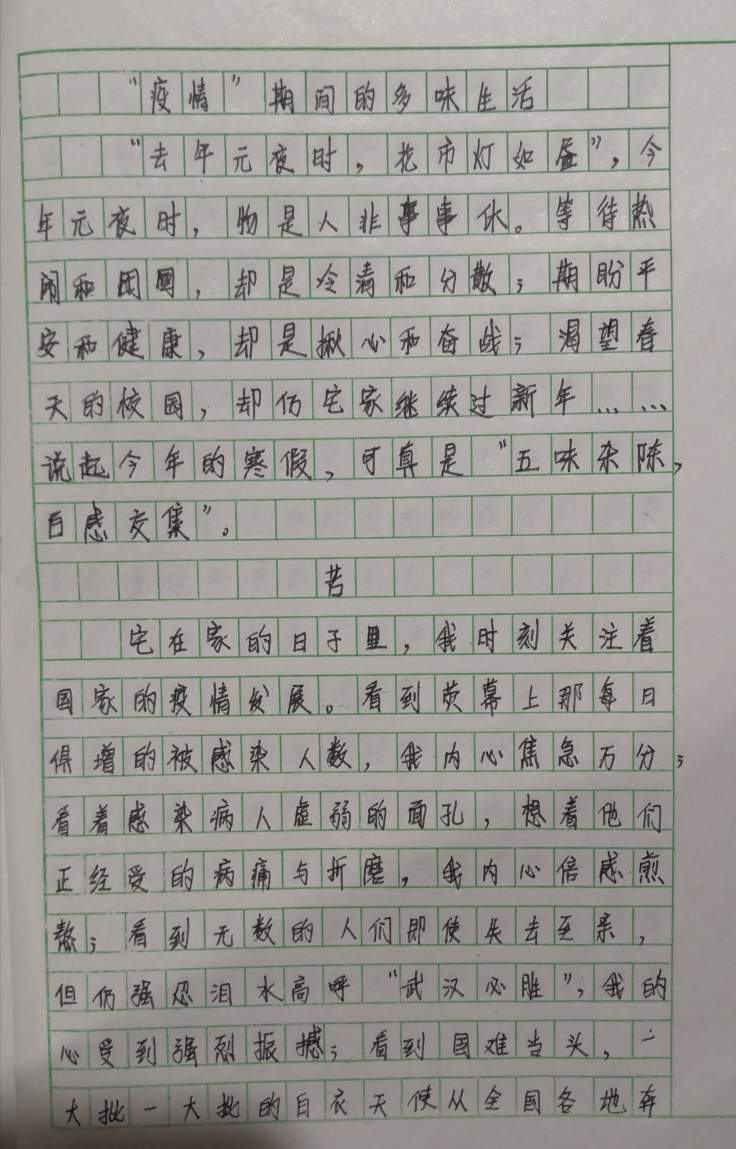 “疫情”期间的多味生活
“去年元夜时，花市灯如昼”，今
年元夜时，物是人非事事休。等待热
闹和团圆，却是冷清和分散；期盼平
安和健康，却是揪心和奋战；渴望春
天的校园，却仍宅家继续过新年……
说起今年的寒假，可真是“五味杂陈，
百感交集”。
苦
宅在家的日子里，我时刻关注着
国家的疫情发展。看到荧幕上那每日
俱增的被感染人数，我内心焦急万分；
看着感染病人虚弱的面孔，想着他们
正经受的病痛与折磨，我内心倍感煎
熬；看到无数的人们即使失去至亲，
但仍强忍泪水高呼“武汉必胜”，我的
心受到强烈振撼；看到国难当头，一
大批一大批的白衣天使从全国各地奔